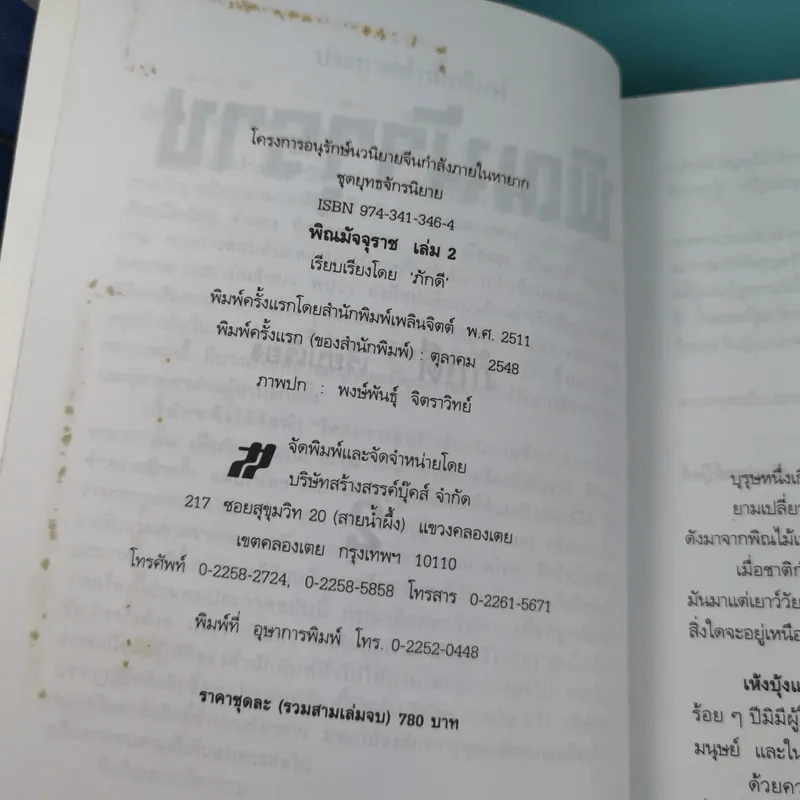 โครงการอนุรักษ์นวนิยายจีนกำลังภายในหายาก
ชุดยุทธจักรนิยาย
ISBN 974-341-346-4
พิณมัจจุราช เล่ม 2
เรียบเรียงโดย 'ภักดี'
พิมพ์ครั้งแรกโดยสำนักพิมพ์เพลินจิตต์ พ.ศ. 2511
พิมพ์ครั้งแรก (ของสำนักพิมพ์) : ตุลาคม 2548
ภาพปก : พงษ์พันธุ์ จิตราวิทย์
จัดพิมพ์และจัดจำหน่ายโดย
บริษัทสร้างสรรค์บุ๊คส์ จำกัด
217 ซอยสุขุมวิท 20 (สายน้ำผึ้ง) แขวงคลองเตย
เขตคลองเตย กรุงเทพฯ 10110
โทรศัพท์ 0-2258-2724, 0-2258-5858 โทรสาร 0-2261-5671
พิมพ์ที่ อุษาการพิมพ์ โทร. 0-2252-0448
ราคาชุดละ (รวมสามเล่มจบ) 780 บาท
บุรุษหนึ่งเ
ยามเปลี่ย
ดังมาจากพิณไม้
เมื่อชาติก
มันมาแต่เยาว์วัย
สิ่งใดจะอยู่เหนือ
เห้งบุ้งแ
ร้อย ๆ ปีมิมีผู้
มนุษย์ และใน
ด้วยคว